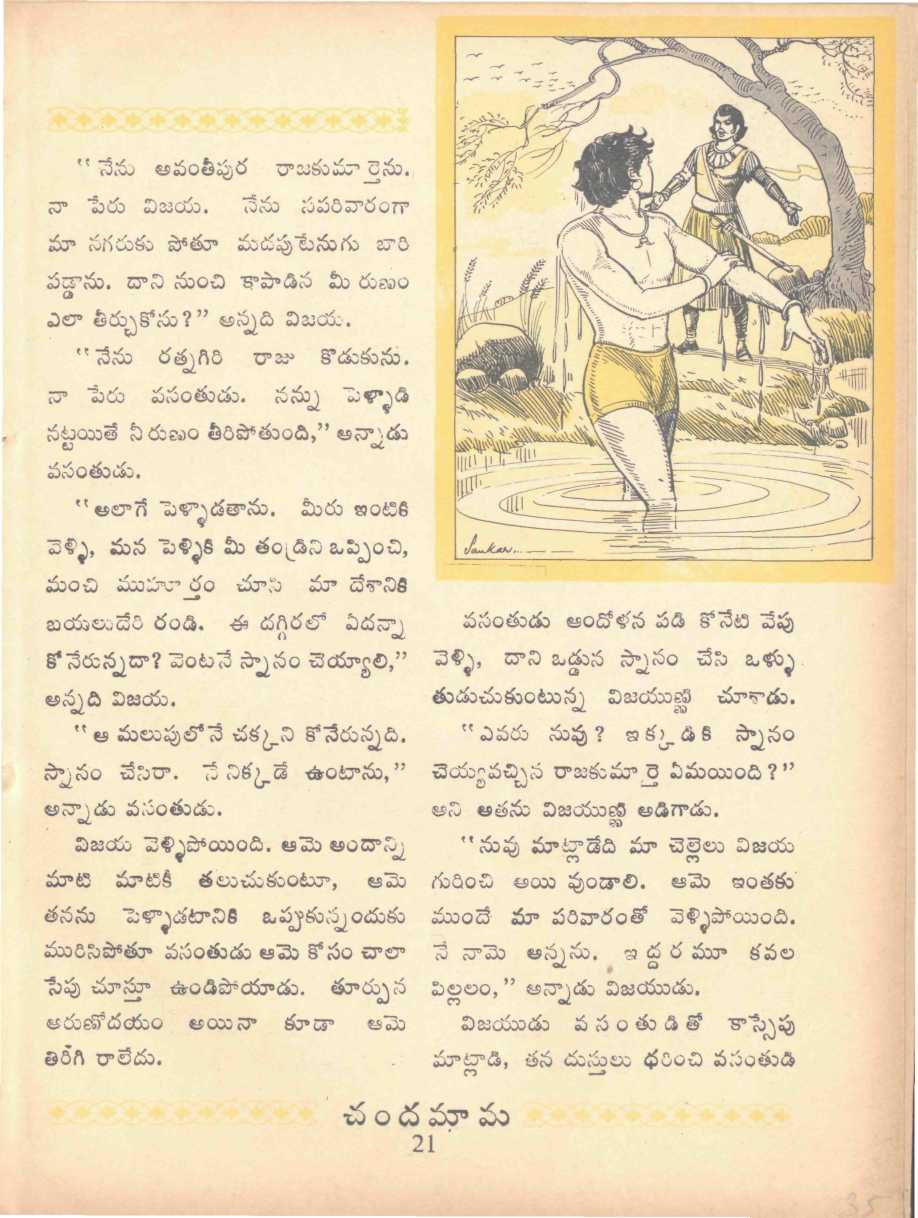 “నేను అవంతీపుర రాజకుమార్తెను.
నా పేరు విజయ. నేను సపరివారంగా
మా నగరుకు పోతూ మదపుటేనుగు బారి
పడ్డాను. దాని నుంచి కాపాడిన మీ రుణం
ఎలా తీర్చుకోను?” అన్నది విజయ.
“నేను రత్నగిరి రాజు కొడుకును.
నా పేరు వసంతుడు. నన్ను పెళ్ళాడి
నట్టయితే నీ రుణం తీరిపోతుంది,” అన్నాడు
వసంతుడు.
“అలాగే పెళ్ళాడతాను. మీరు ఇంటికి
వెళ్ళి, మన పెళ్ళికి మీ తండ్రిని ఒప్పించి,
మంచి ముహూర్తం చూసి మా దేశానికి
బయలుదేరి రండి. ఈ దగ్గిరలో ఏదన్నా
కోనేరున్నదా? వెంటనే స్నానం చెయ్యాలి,”
అన్నది విజయ.
“ఆ మలుపులోనే చక్కని కోనేరున్నది.
స్నానం చేసిరా. నేనిక్కడే ఉంటాను,”
అన్నాడు వసంతుడు.
విజయ వెళ్ళిపోయింది. ఆమె అందాన్ని
మాటి మాటికీ తలుచుకుంటూ, ఆమె
తనను పెళ్ళాడటానికి ఒప్పుకున్నందుకు
మురిసిపోతూ వసంతుడు ఆమె కోసం చాలా
సేపు చూస్తూ ఉండిపోయాడు. తూర్పున
అరుణోదయం అయినా కూడా ఆమె
తిరిగి రాలేదు.
Sankar...
వసంతుడు ఆందోళన పడి కోనేటి వేపు
వెళ్ళి, దాని ఒడ్డున స్నానం చేసి ఒళ్ళు
తుడుచుకుంటున్న విజయుణ్ణి చూశాడు.
“ఎవరు నువు? ఇక్కడికి స్నానం
చెయ్యవచ్చిన రాజకుమార్తె ఏమయింది?”
అని అతను విజయుణ్ణి అడిగాడు.
“నువు మాట్లాడేది మా చెల్లెలు విజయ
గురించి అయి వుండాలి. ఆమె ఇంతకు
ముందే మా పరివారంతో వెళ్ళిపోయింది.
నే నామె అన్నను. ఇద్దరమూ కవల
పిల్లలం,” అన్నాడు విజయుడు.
విజయుడు వసంతుడితో కాస్సేపు
మాట్లాడి, తన దుస్తులు ధరించి వసంతుడి
చందమామ
21
35